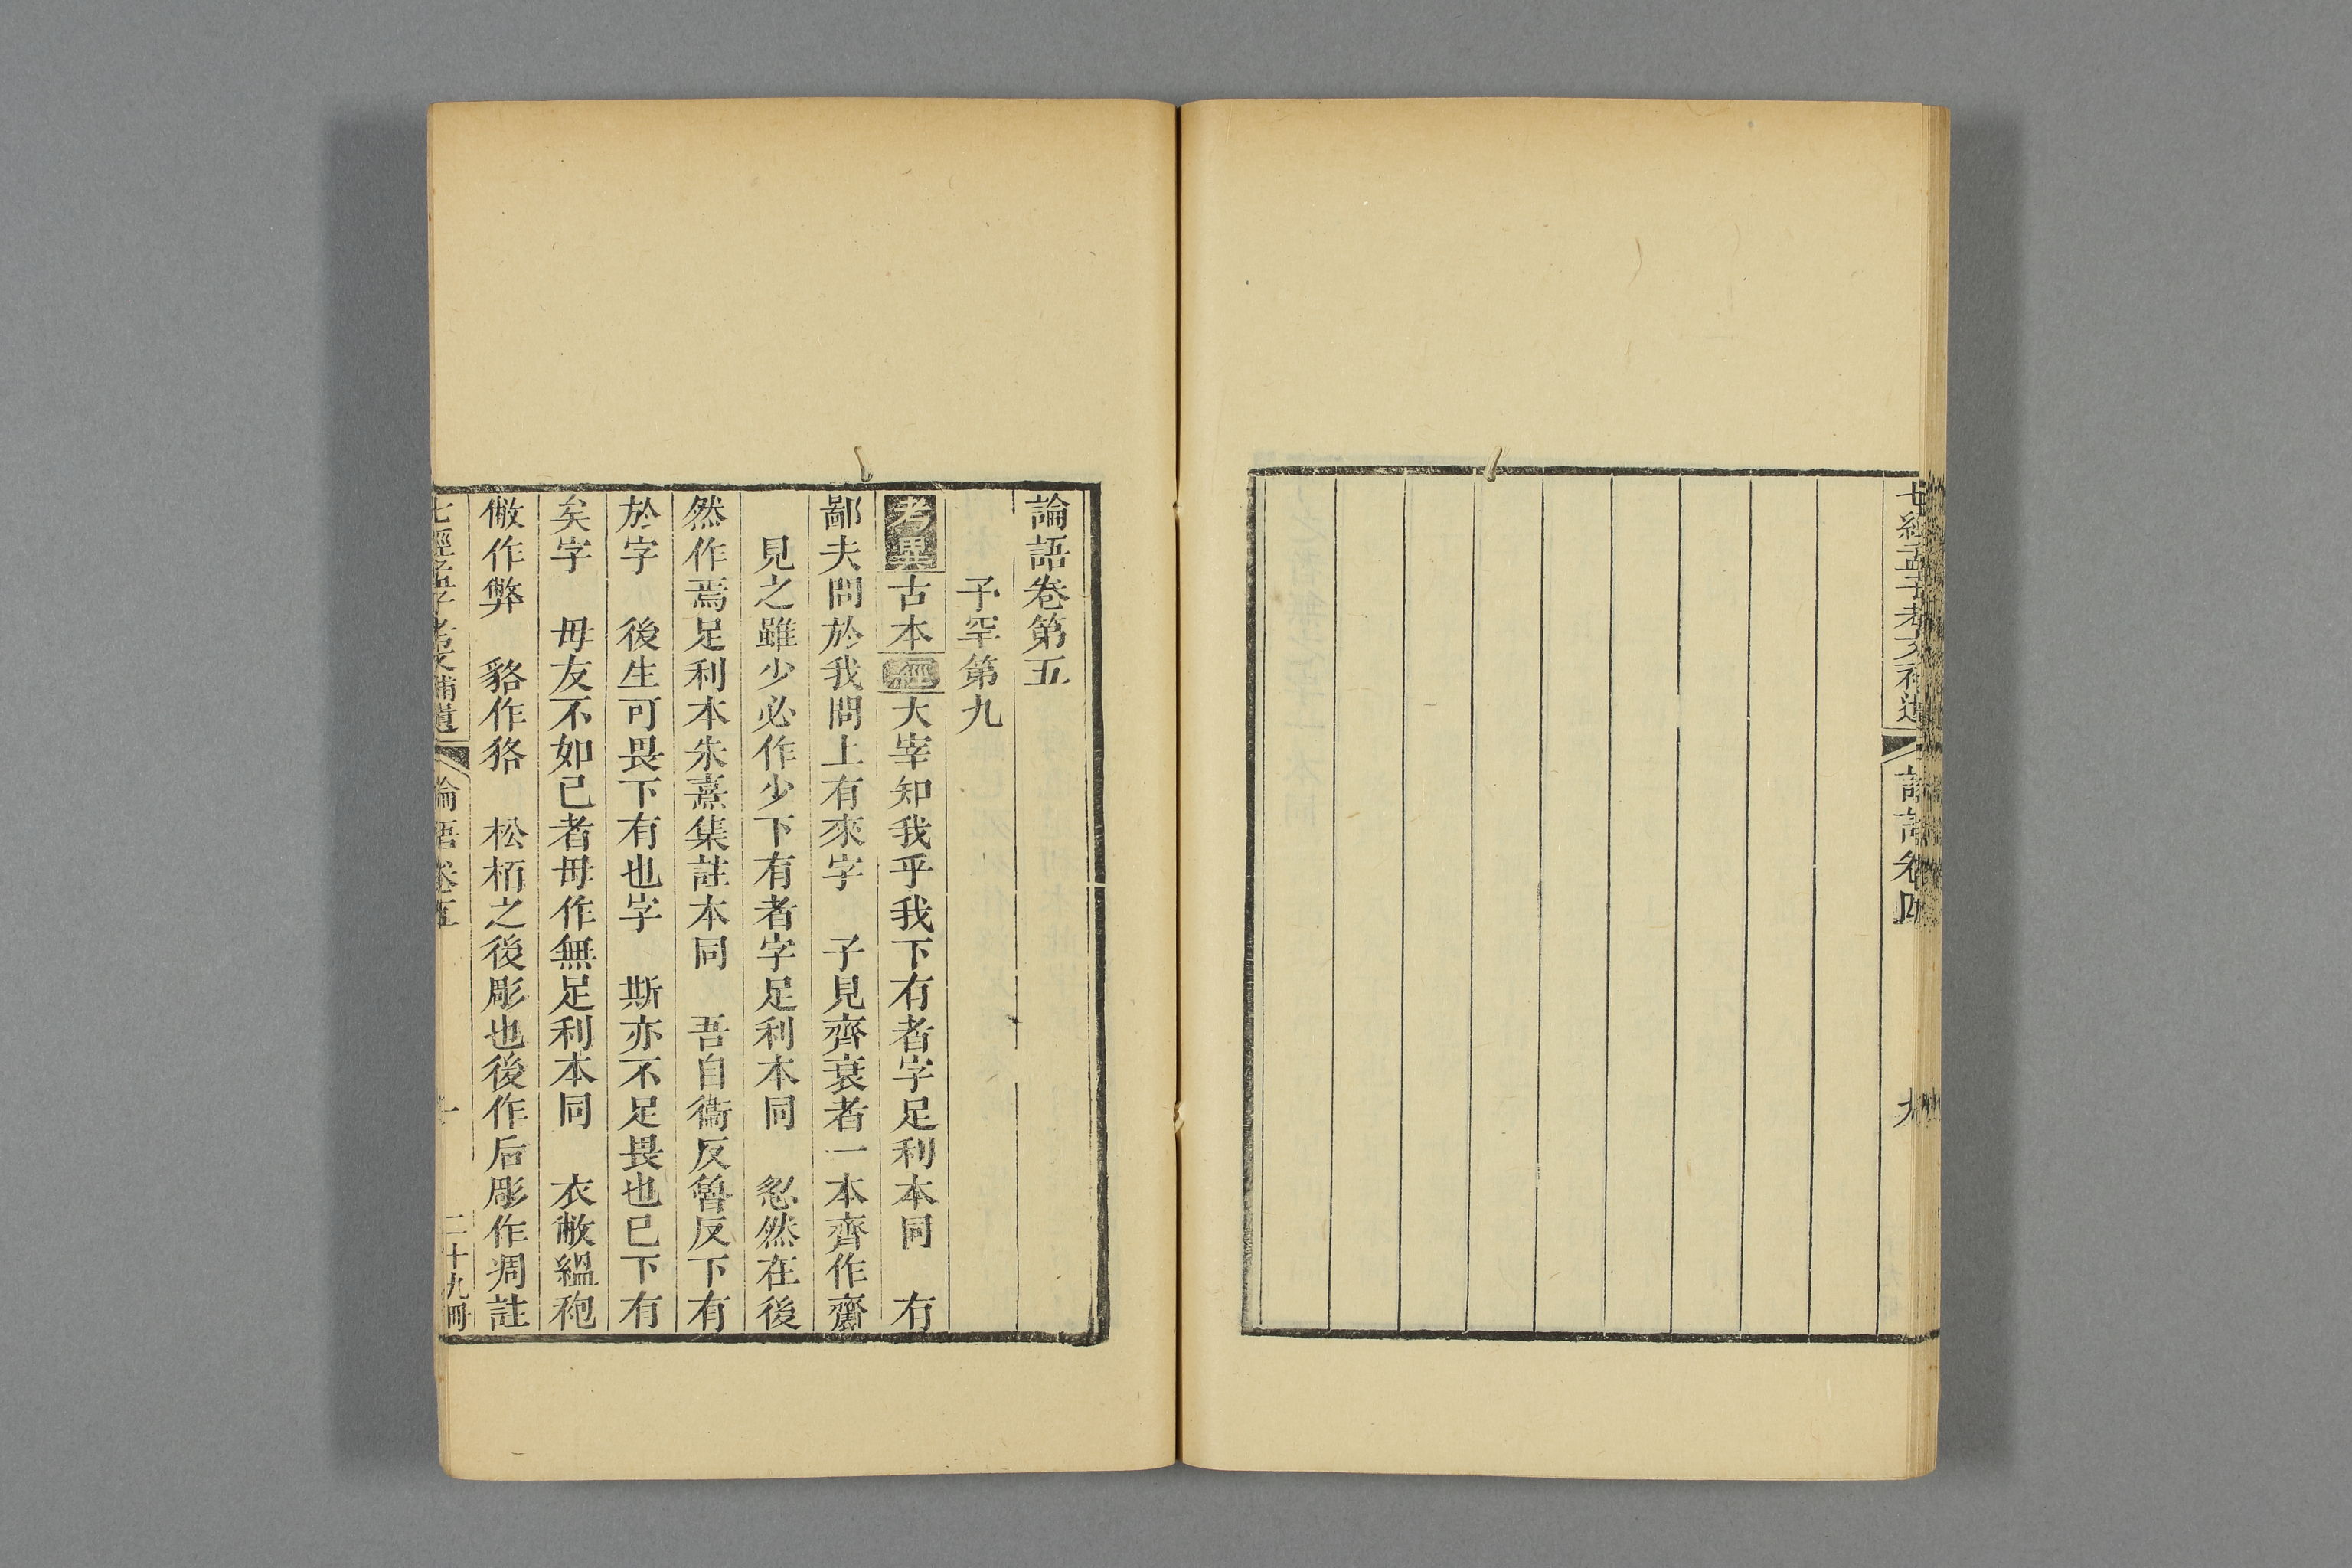 七經孟子考文補遺 論語卷四 九
論語卷第五
子罕第九
考異 古本 經 大宰知我乎我下有者字足利本同 有
鄙夫問於我問上有來字 子見齊衰者一本齊作齋
見之雖少必作少下有者字足利本同 忽然在後
然作焉足利本朱熹集註本同 吾自衞反魯反下有
於字 後生可畏下有也字 斯亦不足畏也已下有
矣字 毋友不如己者毋作無足利本同 衣敝縕袍
儆作弊 貉作狢 松栢之後彫也後作后彫作凋註
七經孟子考文補遺 論語卷五 一 二十九冊